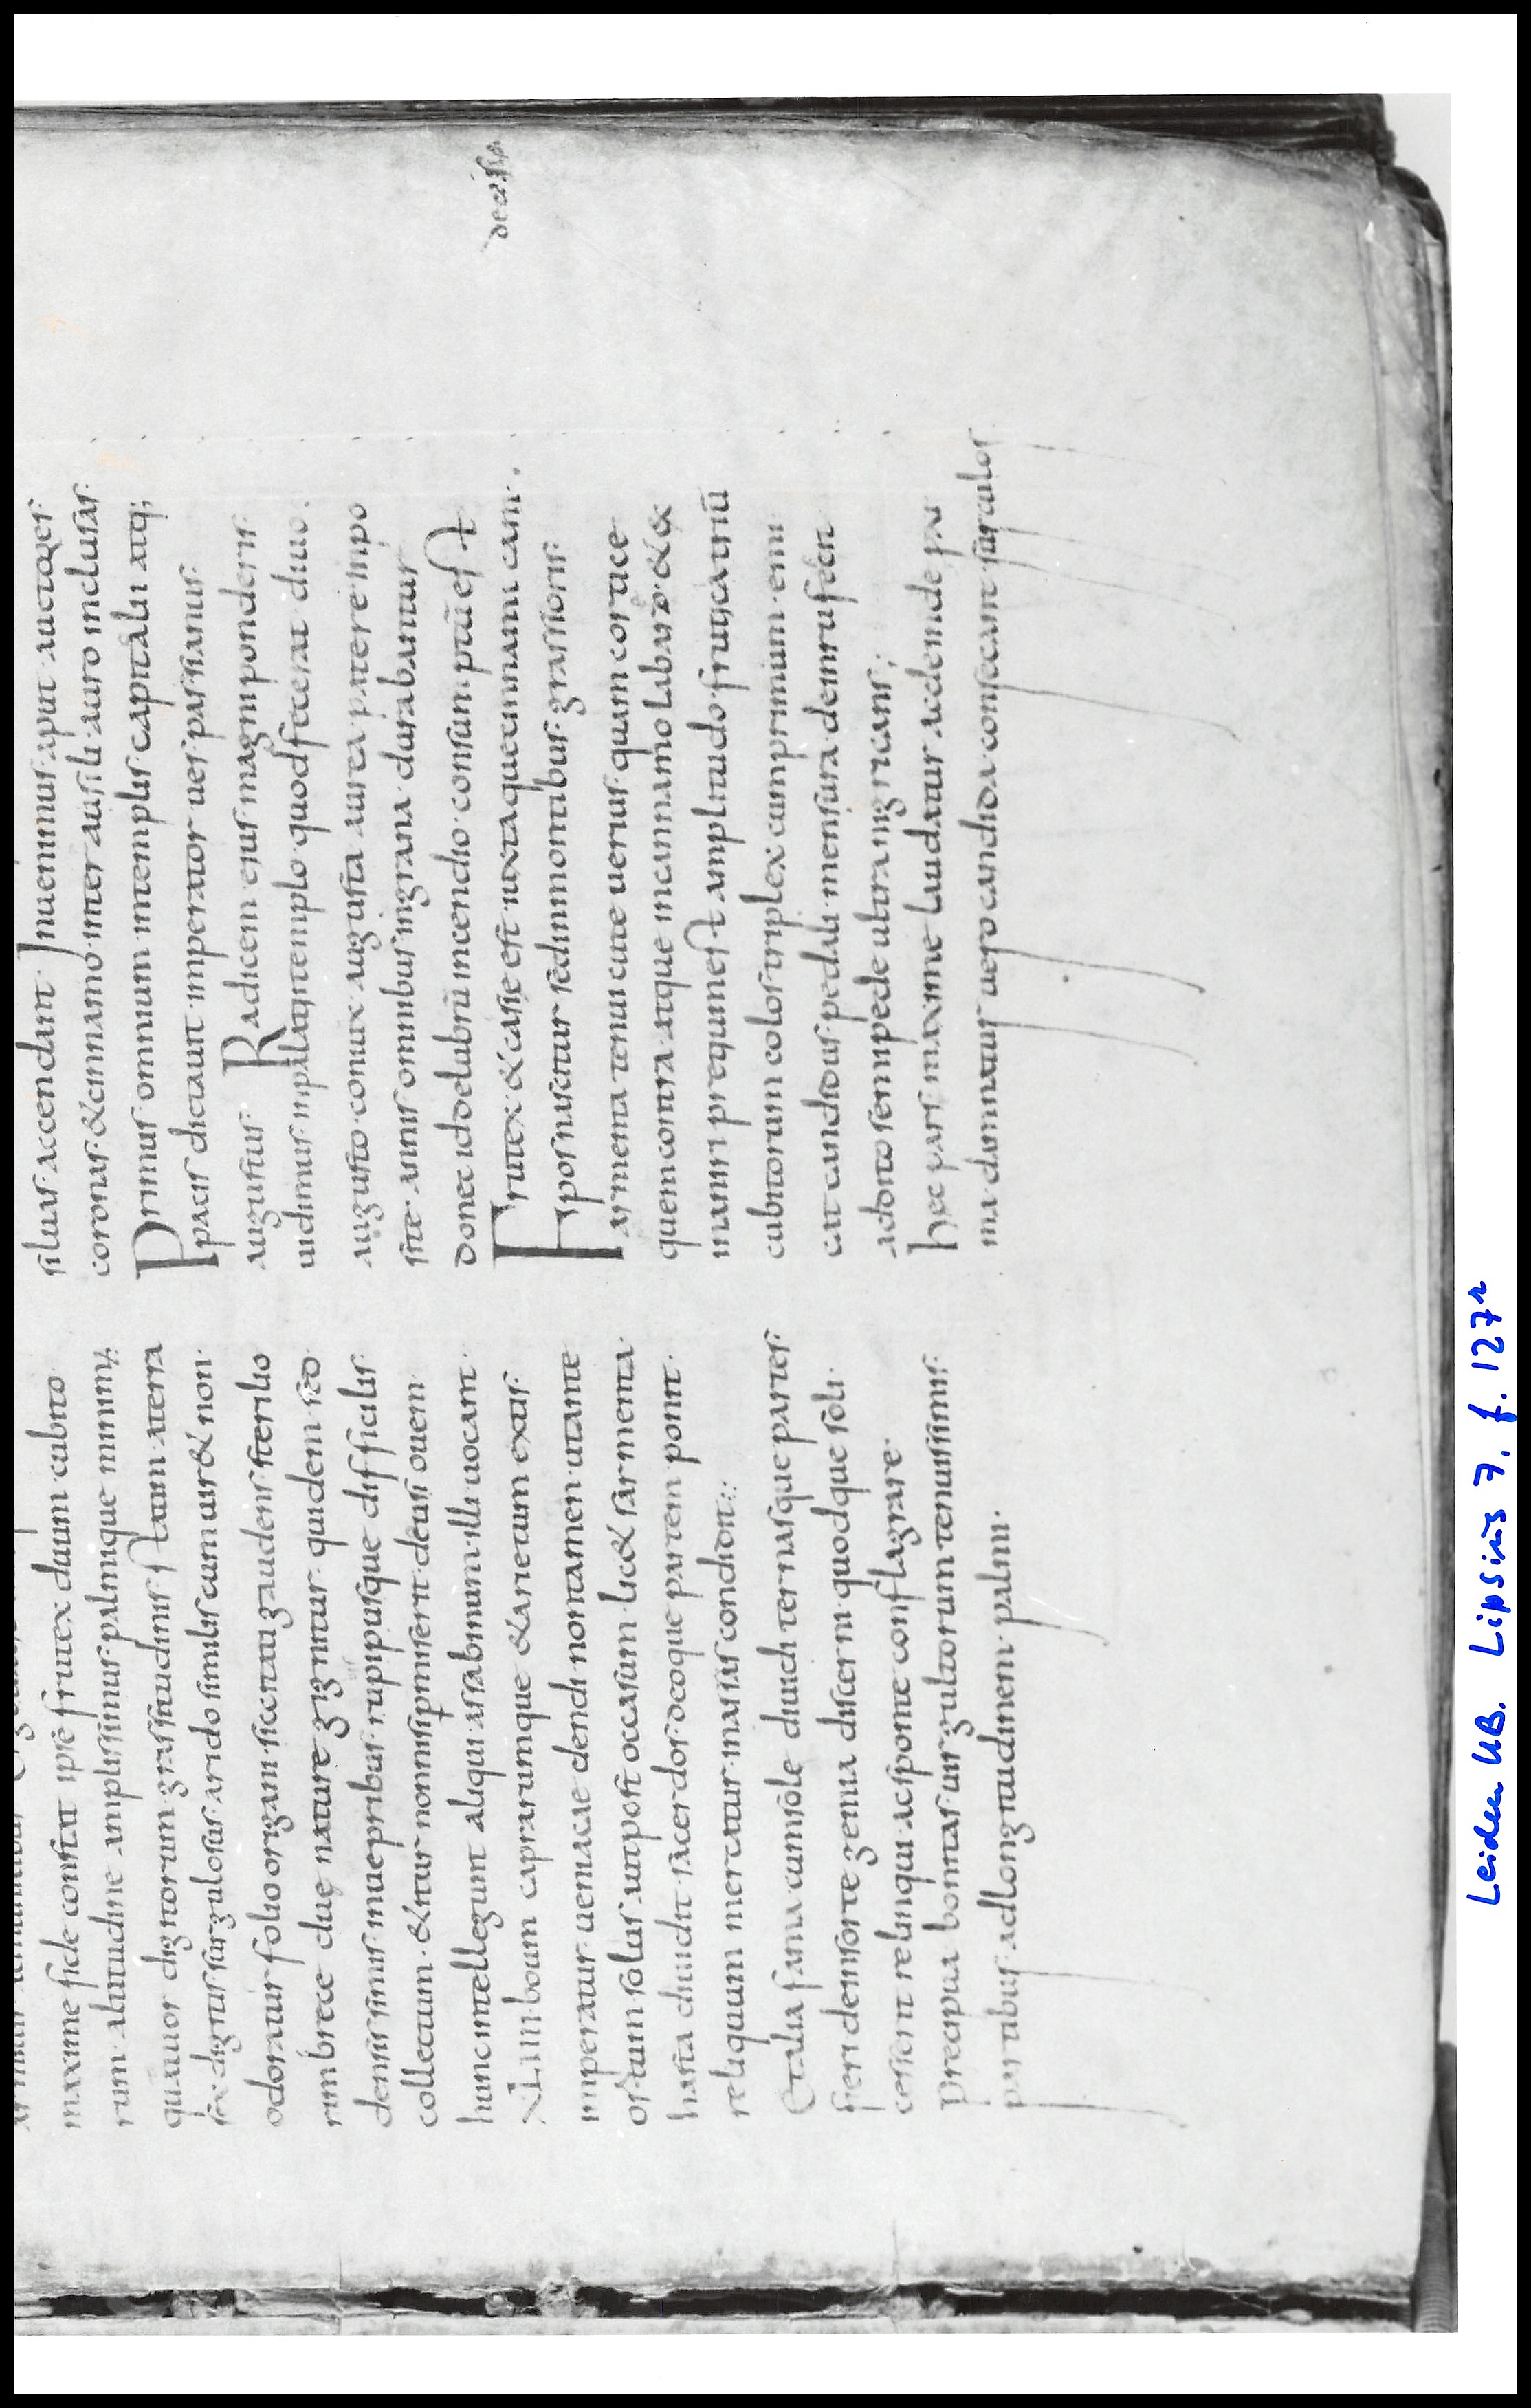 maxime fide constat ipse frutex duum cubito
rum altitudine amplissimus palmique minimus
quattuor digitorum grassitudinis statim a terra
sex digitis surgulosus arido similis cum uir& non
odoratur folio origani siccitati gaudens sterilio
rimbrece due nature gignitur quidem sed
densissimis inuepribus rupipusque difficilis
collectum &itur non nisi pmiserit deusi ouem
hunc intellegunt aliqui assabinum illi uocant.
XLIIII boum caprarumque & arietum extis
imperatur uenia cedendi non tamen ut ante
ortum solis aut post occasum lic& sarmenta
hasta diuidit sacerdos deoque partem ponit.
reliquum mercatur massas condidit::
Et alia fama cum sole diuidi ternasque partes
fieri dein sorte gemia discerni quodque soli
cesserit relinqui ac sponte conflagrare.
Precipua bonitas uirgultorum tenuissimis
partibus ad longitudinem palmi.
siluas accendant Inuenimus aput auctores
coronas & cinnamo interassili auro inclusas
Primus omnium in templis capitalii atq;
pacis dicauit imperator uespassianus
augustus. Radicem eius magni ponderis
uidimus in palatii templo quod fecerat diuo.
augusto coniux augusta aurea patere impo
site annis omnibus in grana durabantur
donec id delubrū incendio consumptū est
Frutex & casie est iuxta que cinnami cam.
Fpos nascitur sed in montibus grassioris
armenta tenui cute uerius quam cortice
quem contra atque in cannamo labari &&
inaniri pretium est amplitudo frutici trinū
cubitorum colos triplex cum primum emi
cat candidus pedali mensura dein rufescit
addito semipede ultra nigricans;
hec pars maxime laudatur ac deinde pxi
ma damnatur uero candida consecant surculos
decisia
Leiden UB. Lipsius 7, f. 127r